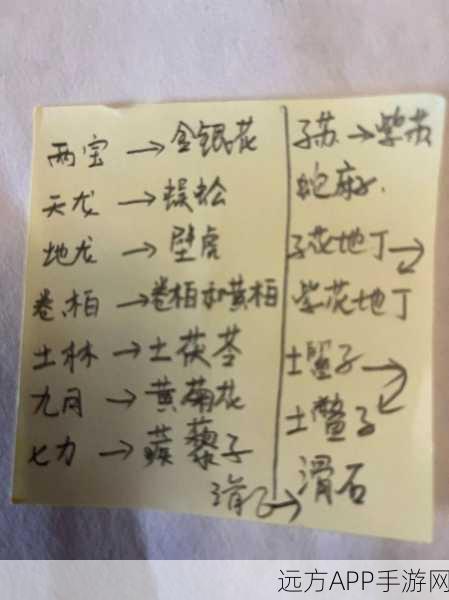 两宝→金银花
天龙→蜈蚣
地龙→壁虎
卷柏→卷柏和黄柏
土林→土茯苓
九月→黄菊花
七力→蒺藜子
子苏→紫苏
子花地丁→
紫花地丁
土鳖子→
土鳖子
滑石
远方APP手游网